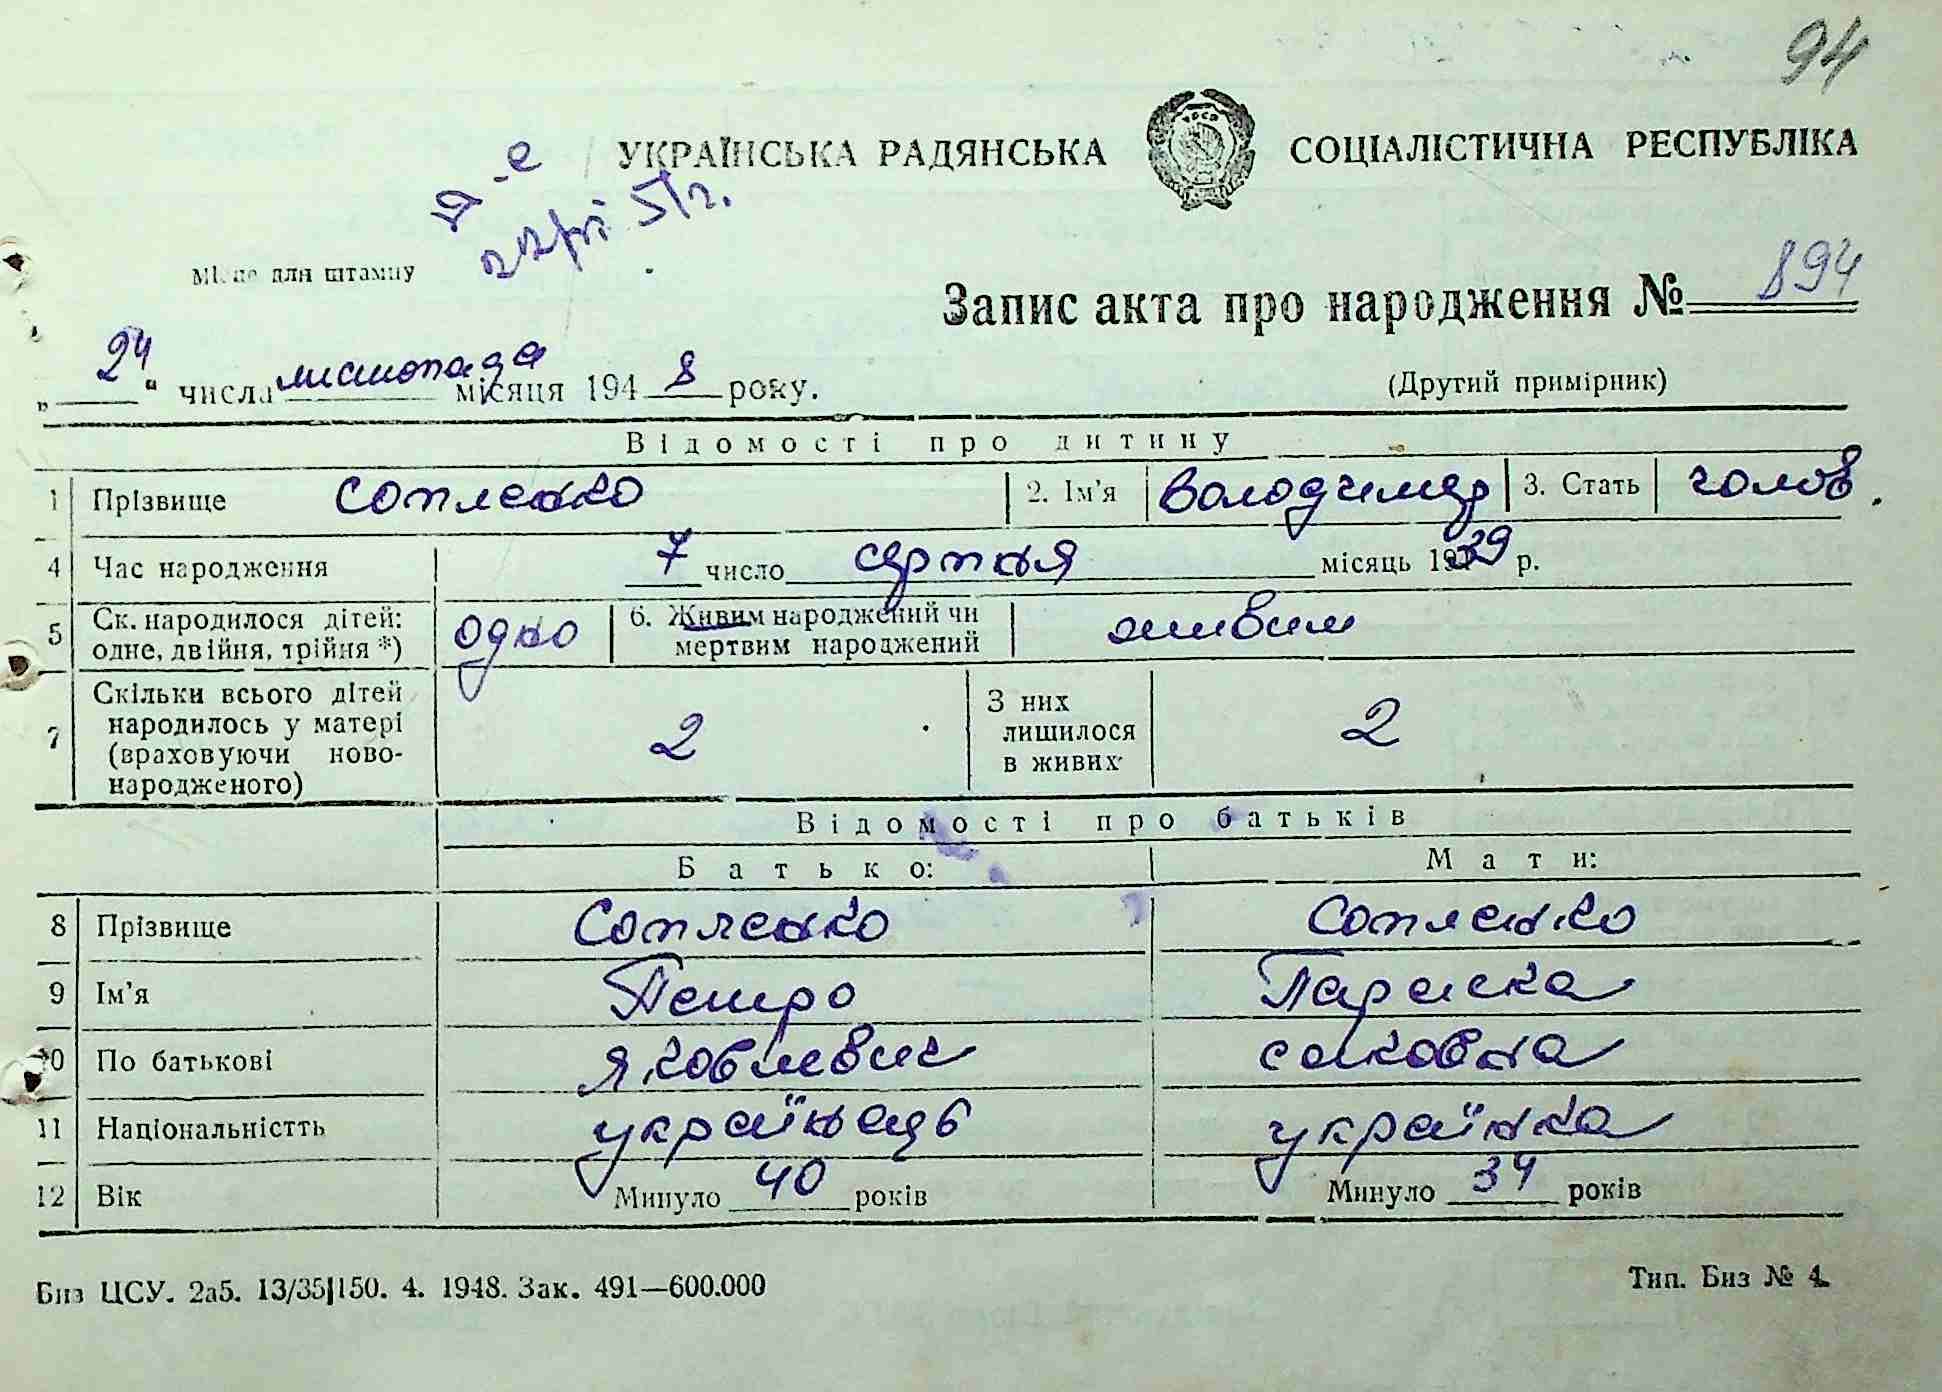 94
УКРАЇНСЬКА РАДЯНСЬКА СОЦІАЛІСТИЧНА РЕСПУБЛІКА
Місце для штампу
Запис акта про народження № 894
„24“ числа листопада місяця 1948 року.
(Другий примірник)
Відомості про дитину
1 Прізвище Сотленко 2. Ім'я Володимир 3. Стать чолов.
4 Час народження 7 число серпня місяць 1939 р.
5 Ск. народилося дітей: одне, двійня, трійня *) одно 6. Живим народжений чи мертвим народжений живим
7 Скільки всього дітей народилось у матері (враховуючи ново-народженого) 2 З них лишилося в живих 2
Відомості про батьків
Батько: Мати:
8 Прізвище Сотленко Сотленко
9 Ім'я Петро Параска
10 По батькові Яковлевич
11 Національністть українець українка
12 Вік Минуло 40 років Минуло 34 років
Биз ЦСУ. 2а5. 13/35|150. 4. 1948. Зак. 491—600.000 Тип. Биз № 4.